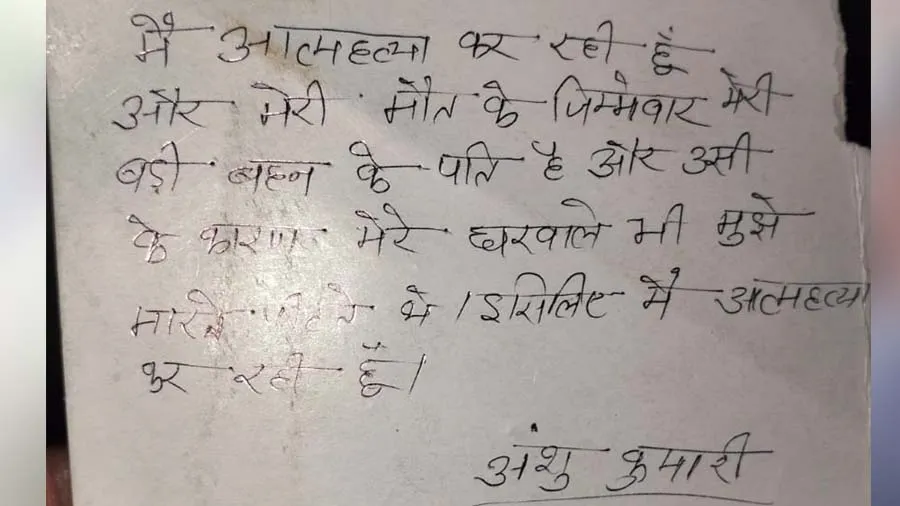 मैं आत्महत्या कर रही हूँ
और मेरी मौत के जिम्मेवार मेरी
बड़ी बहन के पति है और उसी
के कारण मेरे घरवाले भी मुझे
मारते पीटते थे। इसिलिए मैं आत्महत्या
कर रही हूँ।
अंशु कुमारी